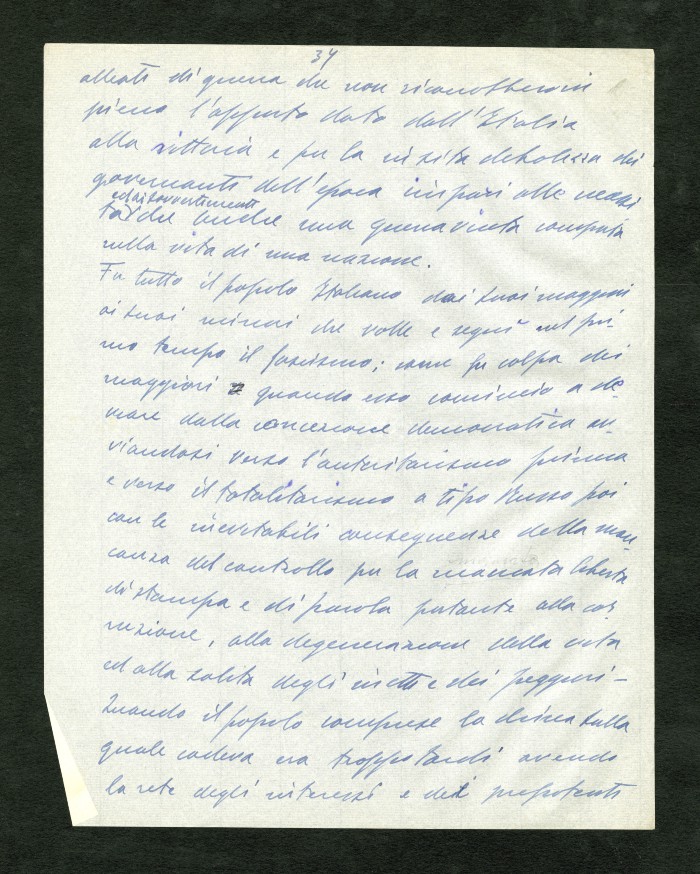 34
alleati di guerra che non riconobbero in
pieno l'apporto dato dall'Italia
alla vittoria e per la insita debolezza dei
governanti dell'epoca impari alle necessi
ed ai avvertimenti
tà che anche una guerra vinta comporta
nella vita di una nazione.
Fu tutto il popolo Italiano dai suoi maggiori
ai suoi minori che volle e seguì nel pri-
mo tempo il fascismo; come fu colpa dei
maggiori quando esso cominciò a de-
viare dalla concezione democratica av-
viandosi verso l'autoritarismo prima
e verso il totalitarismo a tipo Russo poi
con le inevitabili conseguenze della man
canza del controllo per la mancata libertà
di stampa e di parola portante alla cor
ruzione, alla degenerazione della vita
ed alla salita degli inetti e dei peggiori -
Quando il popolo comprese la china sulla
quale cadeva era troppo tardi avendo
la rete degli interessi e dei prepotenti